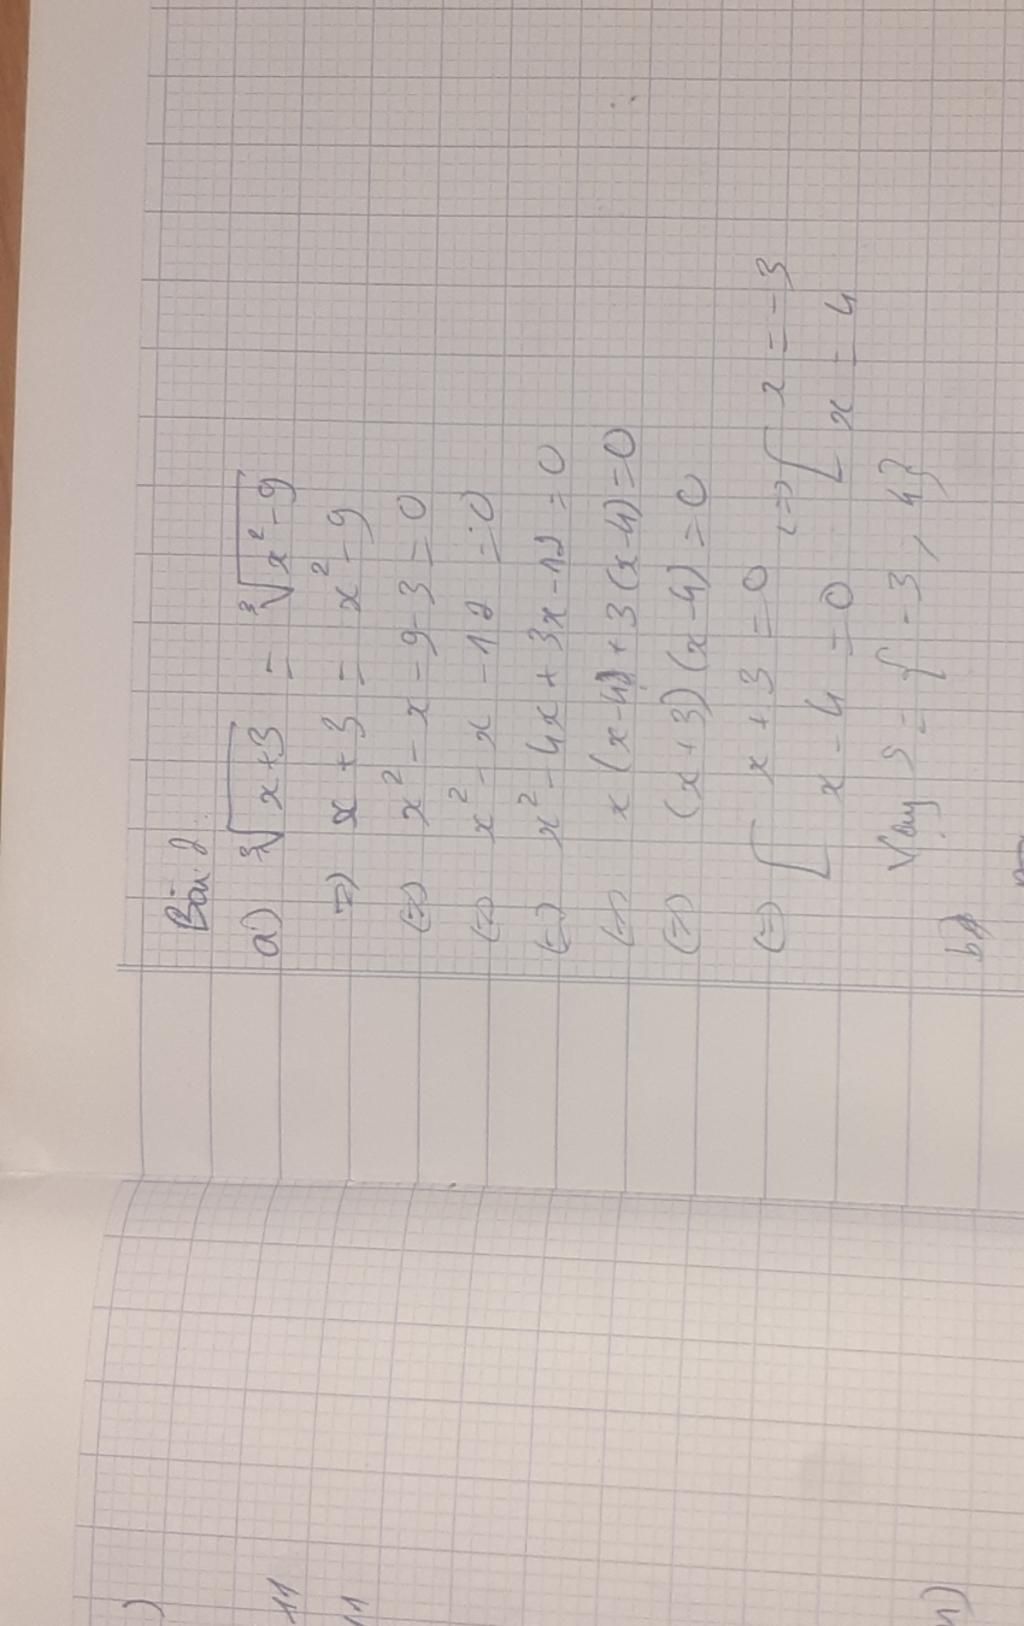 Bài 2
a) ∛(x+3) = ∛(x²-9)
=) x + 3 = x² - 9
(=) x² - x - 9 - 3 = 0
(=) x² - x - 12 = 0
(=) x² - 4x + 3x - 12 = 0
(=) x(x-4) + 3(x-4) = 0
(=) (x+3)(x-4) = 0
(=) [ x + 3 = 0 (=) [ x = -3
x - 4 = 0 x = 4
Vậy S = { -3, 4}
b)
)
11
11
n)